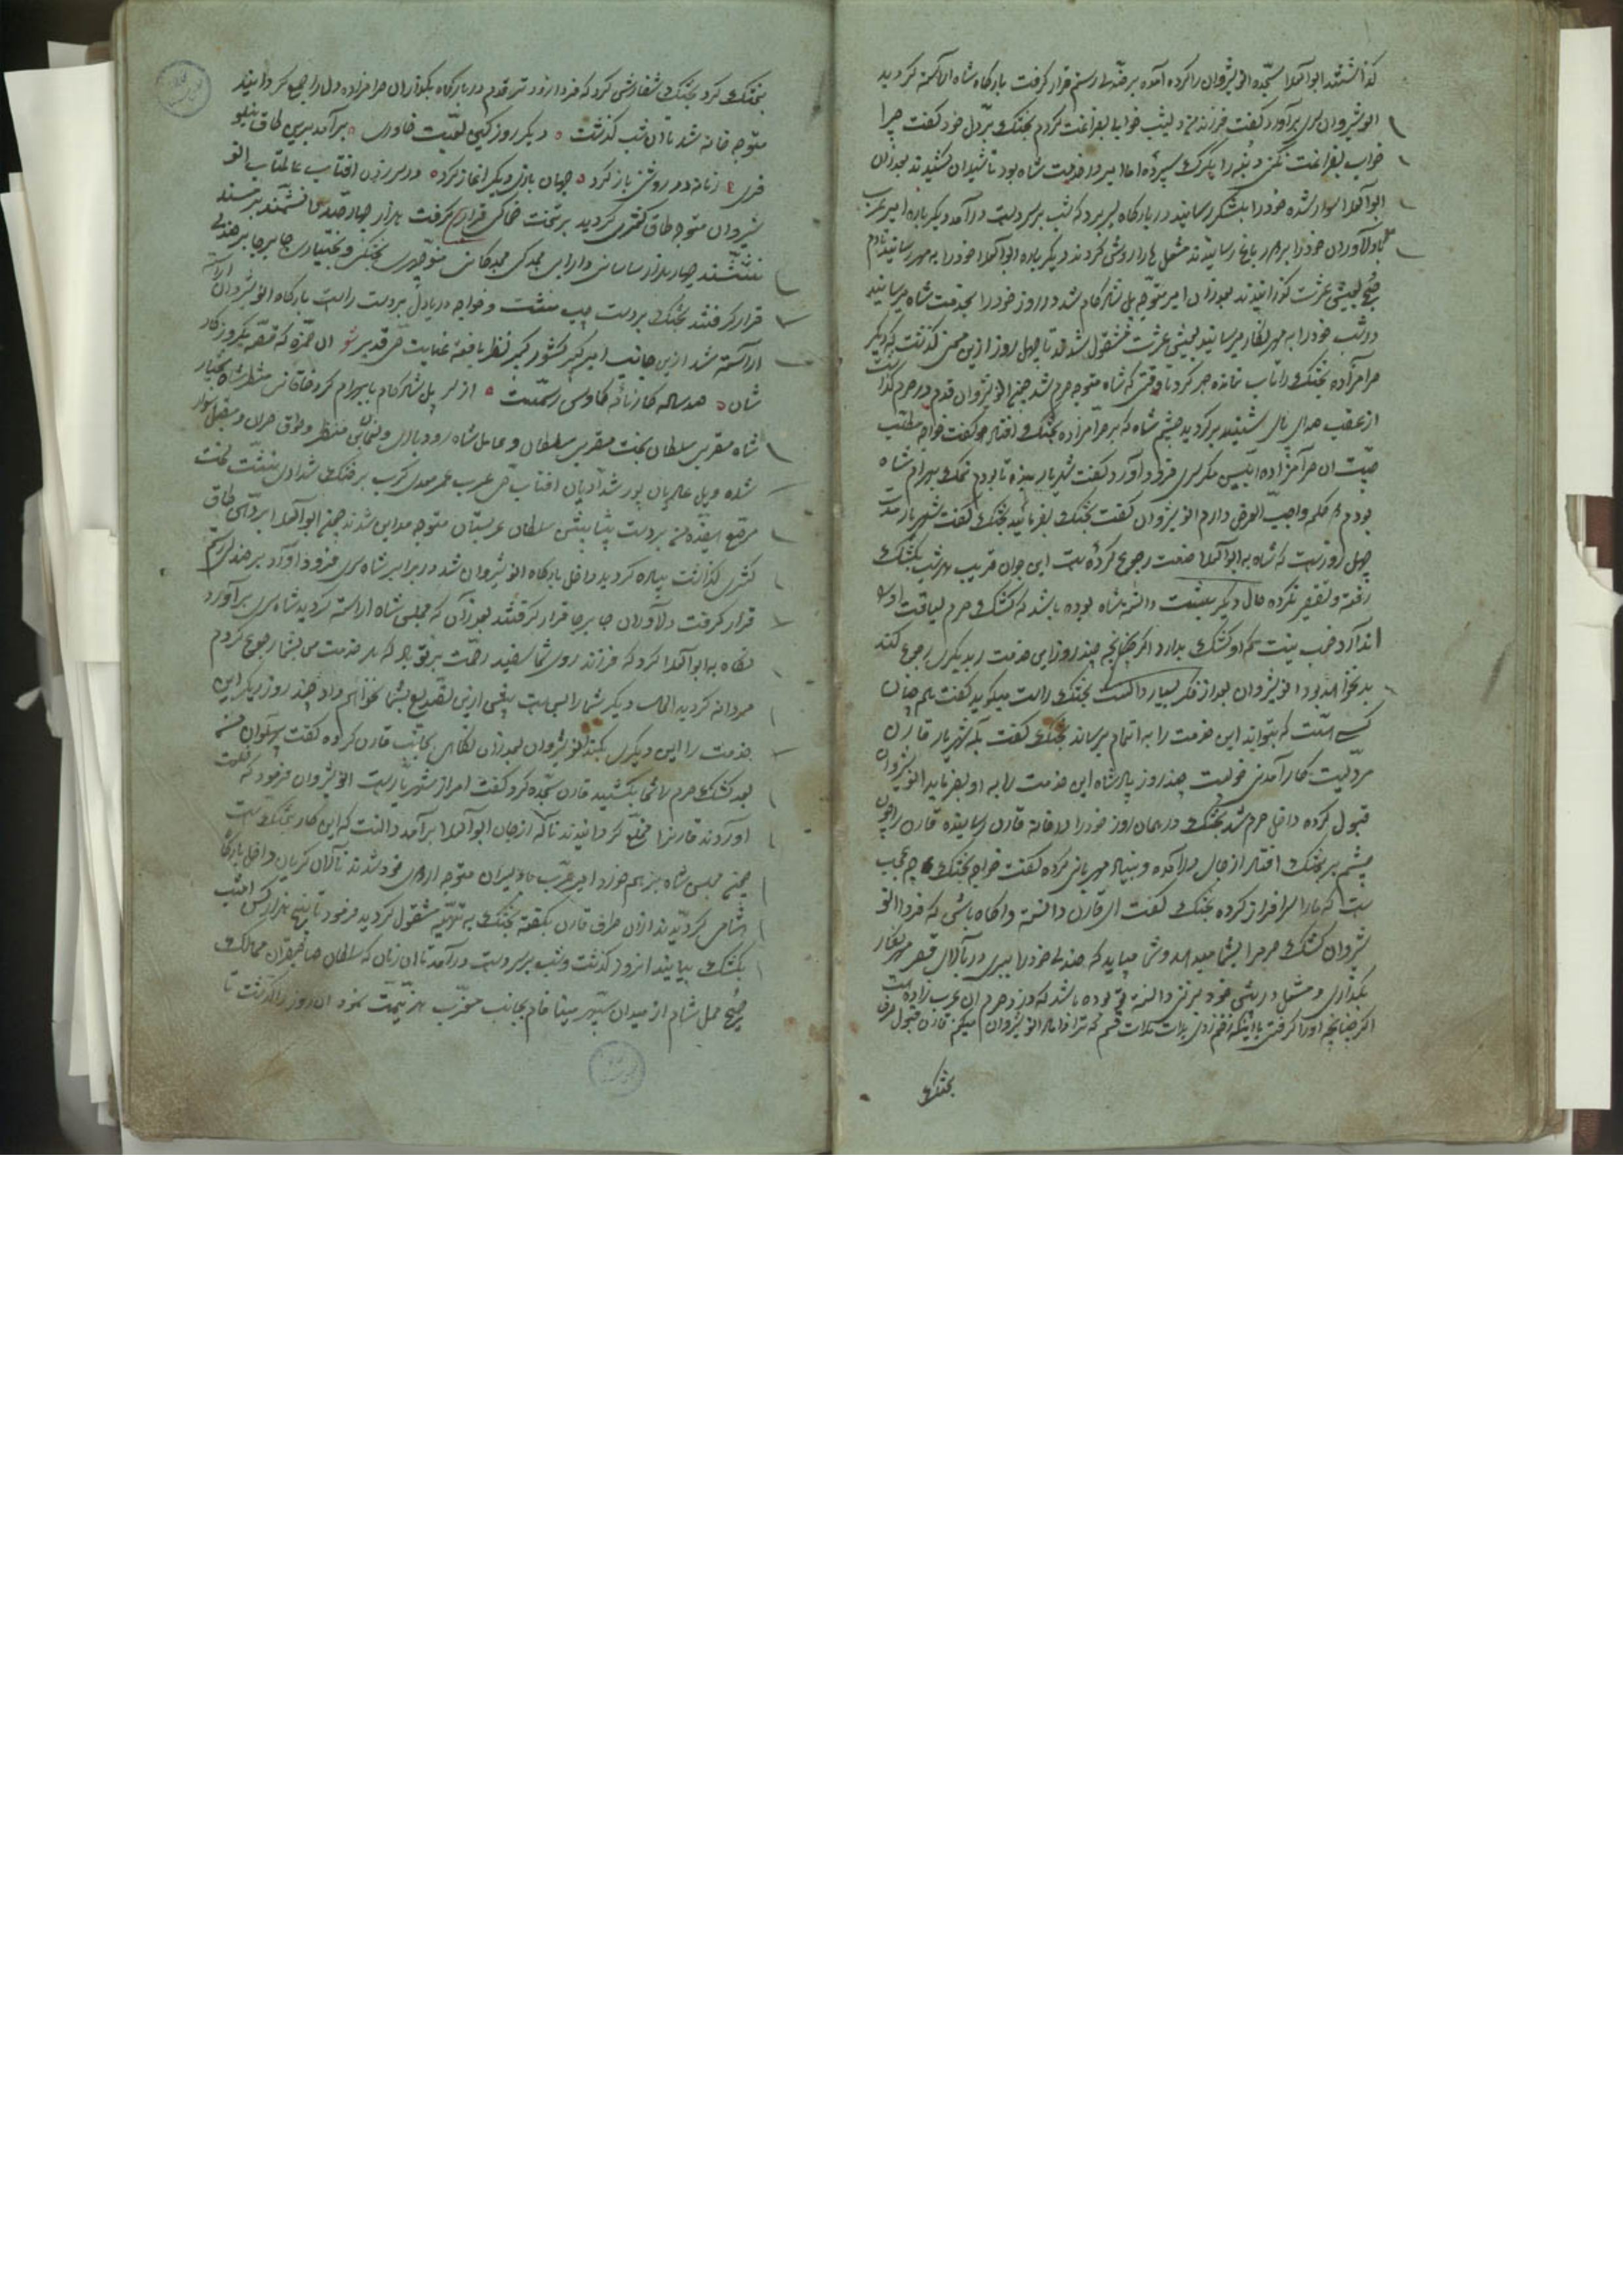 گذاشتند ابوالعلا سجده انوشیروان را کرده آمده بر صندلی رستم قرار گرفت بارگاه شاه آراسته گردید
انوشیروان سر برآورد گفت فرزند من دیشب خواب بفراغت کردم بختک بر دل خود گفت چرا
خواب بفراغت نکنی دنبه را بگرگ سپرده اما امیر در خدمت شاه بود تا شیلان کشیدند بعد از آن
ابوالعلا سوار شده خود را بلشکر رسانید در بارگاه بسر برد که شب بر سر دست درآمد دیگر باره امیر عرب
با دلاوران خود را بر در باغ رسانیدند مشعل ها را روشن کردند دیگر باره ابوالعلا خود را به مهر رسانید تا دم
صبح بعیش عشرت گذرانیدند بعد از آن امیر متوجه پل شادکام شد در روز خود را بخدمت شاه میرسانید
در شب خود را به مهرنگار میرسانید بعیش عشرت مشغول شدند تا چهل روز ازین سخن گذشت که دیگر
حرامزاده بختک را تاب نمانده صبر کرد تا وقتی که شاه متوجه حرم شد چون انوشیروان قدم در حرم گذاشت
از عقب صدای پای شنید برگردید چشم شاه که بر حرامزاده بختک افتاد گفت خواجه مطلب
چیست آن حرامزاده ابلیس مکر سر فرود آورد گفت شهریار بنده تا بودم نمک بحرام شاه
بودم کلمه واجب العرض دارم انوشیروان گفت بختک بفرمائید بختک گفت شهریار مدت
چهل روز است که شاه به ابوالعلا خدمت رجوع کرده است این جوان غریب هر شب بکشک
رفته و تقصیر نکرده حال دیگر دانسته شاه بوده باشد که کشک حرم لیاقت او را
ندارد خوب نیست که او کشک بدارد اگر چنانچه چند روز این خدمت را بدیگری رجوع کنند
بد نخواهد بود انوشیروان بعد از فکر بسیار دانست بختک راست میگوید گفت بهم چنان
کسی هست که بتواند این خدمت را به اتمام برساند بختک گفت بله شهریار قارن
مردیست کارآمدنی خوبست چند روز پادشاه این خدمت را به او بفرماید انوشیروان
قبول کرده داخل حرم شد بختک در همان روز خود را در خانه قارن رسانیده قارن را چون
چشم بر بختک افتاد از جای درآمده و بنیاد مهربانی کرده گفت خواجه بختک چه عجب
است که ما را سرافراز کرده بختک گفت ای قارن دانسته و آگاه باشی که فردا انو
شیروان کشک حرم را بشما میدهد و شما میباید که صندلی خود را ببری در بالای قصر مهرنگار
بگذاری و مشعل در پیش خود بر دانسته بوده باشد که دزد حرم آن عرب زاده است
اگر چنانچه او را گرفتی یا اینکه زخم زدی بذات لات قسم که ترا داماد انوشیروان میکنم قارن قبول کرد
بختک
بختک کرد بختک سفارش کرد که فردا زودتر قدم در بارگاه بگذار آن حرامزاده دل او را جمع گردانید
متوجه خانه شد تا آن شب گذشت دیگر روز کین لعبت خاوری برآمد برین طاق نیلو
فری زمانه در روشنی باز کرد جهان بازی دیگر آغاز کرد در سر زدن آفتاب عالمتاب انو
شیروان متوجه طاق کسری گردید بر تخت خاکی قرار گرفت هزار چهارصد دانشمند بر مسند
نشستند چهار هزار ساسانی دارابی بختکی و بختیاری جابرجا بر صندلی
قرار گرفتند بختک بر دست چپ نشست و خواجه دریادل بر دست راست بارگاه انوشیروان
آراسته شد ازین جانب امیر گیر کشور گیر نظر یافته عنایت حق قدیر آن حمزه که قصه یکروزه کار
شان هدساله کارنامه کاوس رستمست از سر پل شادکام با بهرام گرد خاقان منظر شاه بختیار
شاه مقرب سلطان بخت مغرب سلطان و عامل شاه رودباری و نعمان منظر و طوق حران و مقبل سوار
شده و یل عالم پان پور شد آدیان آفتاب حق عرب عمر معدی کرب بر فنک شدادی نشست تخت
مرصع بر دست پیشاپیش سلطان عربستان متوجه مداین شدند چون ابوالعلا بر در طاق
کسری گذاشت پیاده گردید داخل بارگاه انوشیروان شد در برابر شاه سر فرود آورد بر صندلی رستم
قرار گرفت دلاوران جابرجا قرار گرفتند بعد از آن که مجلس شاه آراسته گردید شاه سر برآورد
نگاه به ابوالعلا کرد که فرزند روی شما سفید رحمت بر تو باد که هر خدمت من بشما رجوع کردم
مردانه کردید الحال دیگر شما را بس است بیش ازین تصدیع بشما نخواهم داد چند روز دیگر این
خدمت را این دیگری بکند انوشیروان بعد از آن نگاهی بجانب قارن کرده گفت پهلوان شما
بعد کشک حرم ما شما بکشید قارن سجده کرد گفت امر از شهریارست انوشیروان فرمود که خلعت
آوردند قارن را مخلع گردانیدند ناله از جان ابوالعلا برآمد دانست که این کار بختک است
چون مجلس شاه بر هم خورد امیر عرب با دلیران متوجه اردوی خود شدند نالان گریان داخل بارگاه
شامی گردیدند ازان طرف قارن بگفته بختک به تدبیر مشغول گردید فرمود تا پنج هزار کس امشب
بکشک بیایند آن روز گذشت و شب بر سر دست درآمد تا آن زمان که سلطان صاحبقران ممالک
صبح حمل شام از میدان سپهر مینا فام بجانب مغرب هزیمت نمود آن روز را گذشت تا